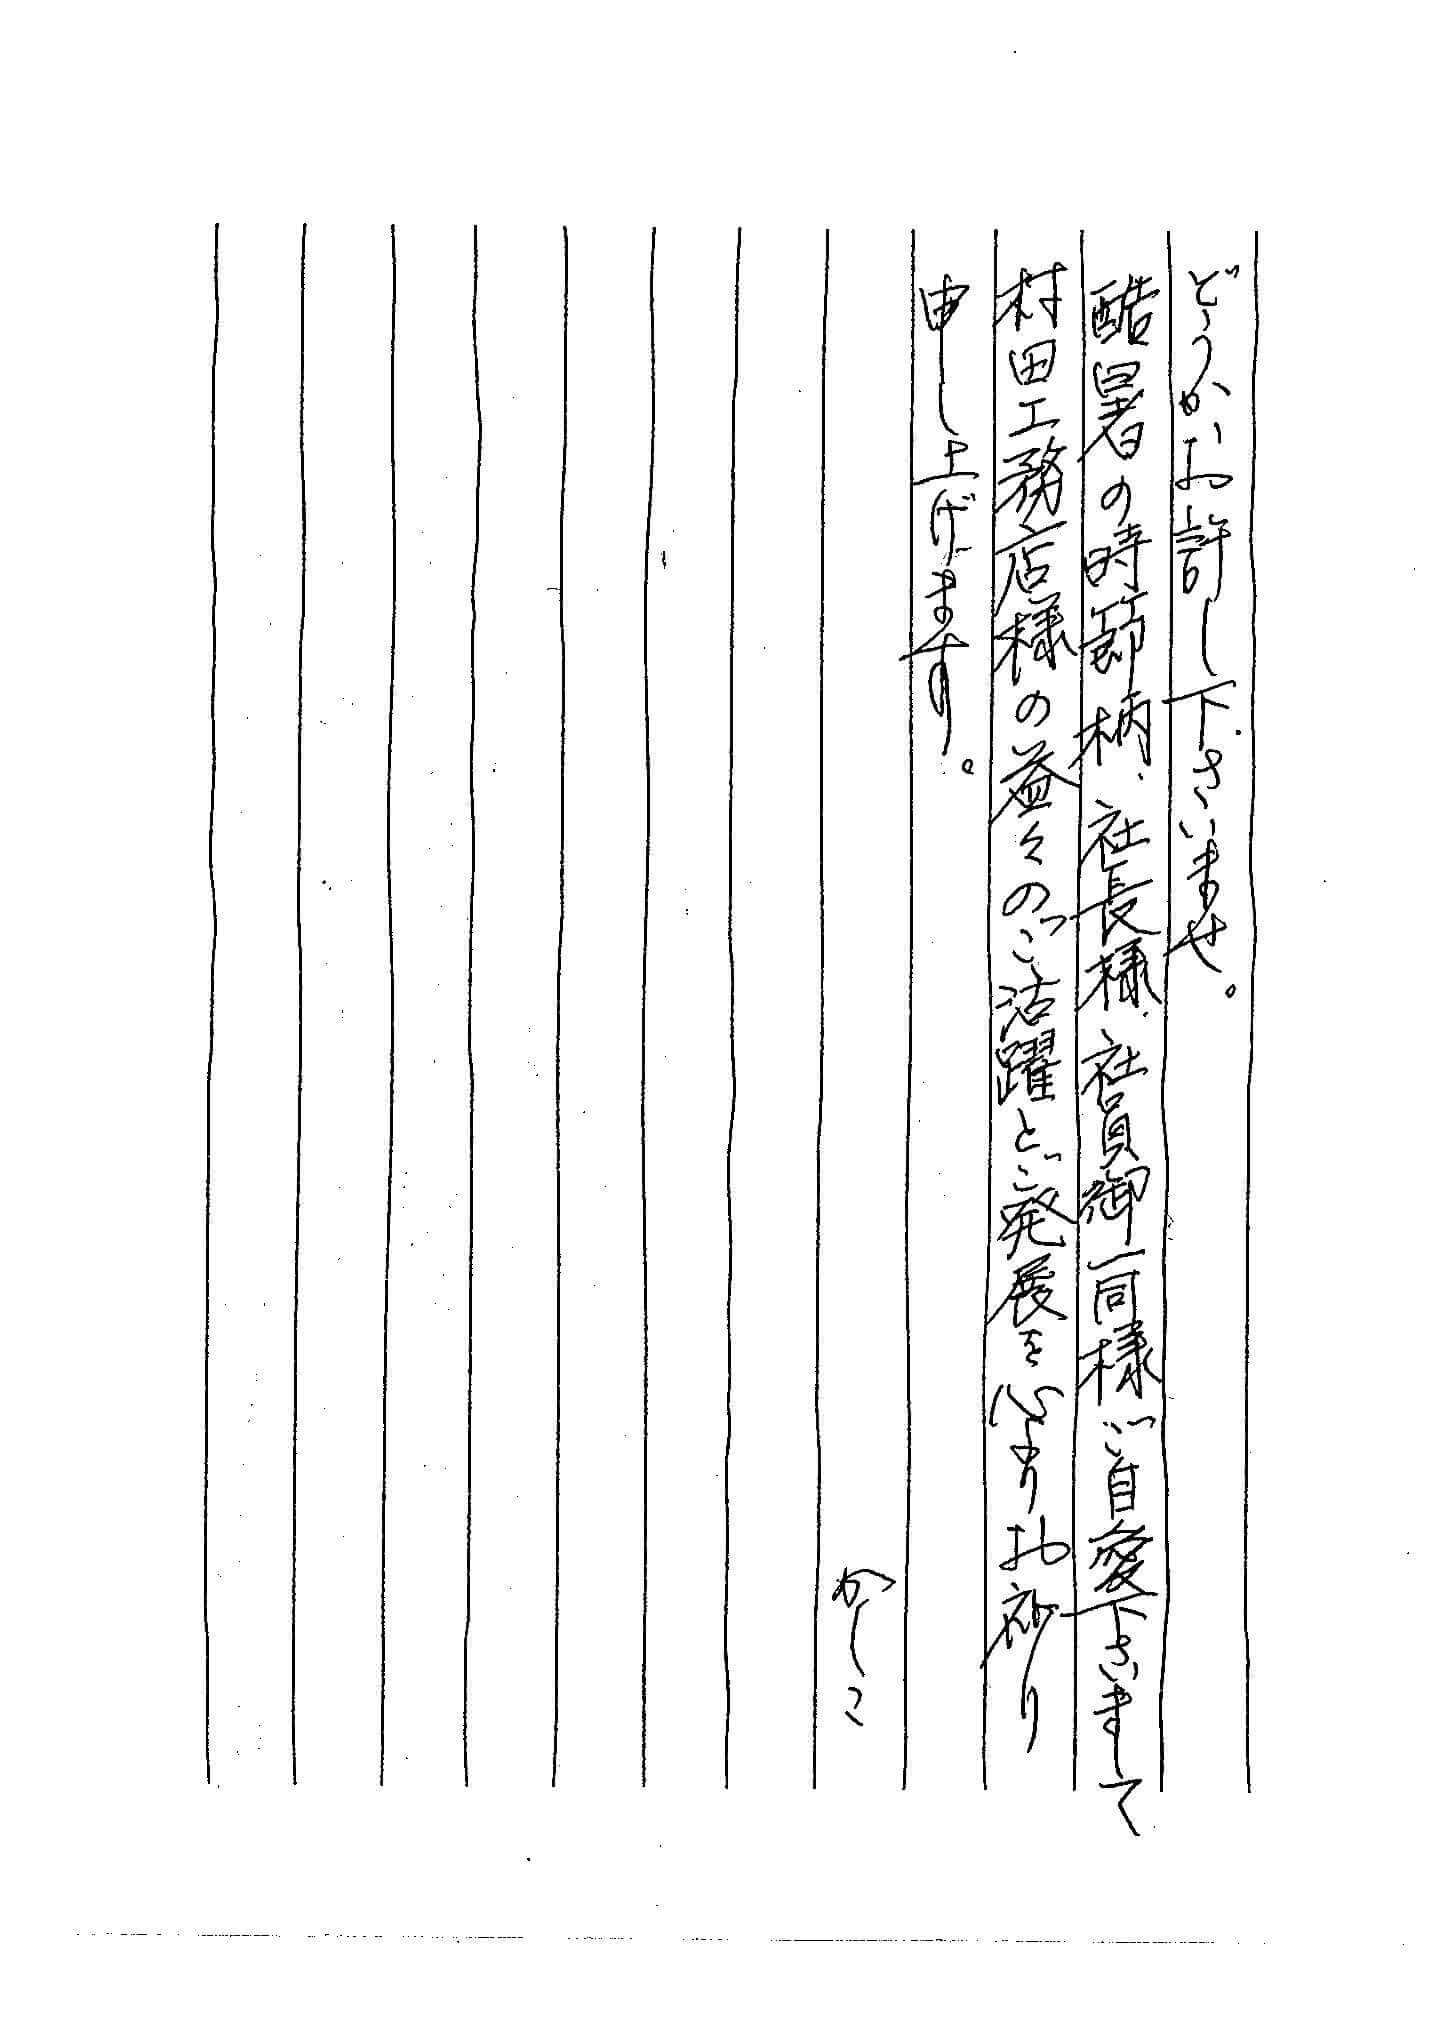 どうかお許し下さいませ。
酷暑の時節柄、社長様、社員御一同様ご自愛下さいまして
村田工務店様の益々のご活躍とご発展を心よりお祈り
申し上げます。
かしこ